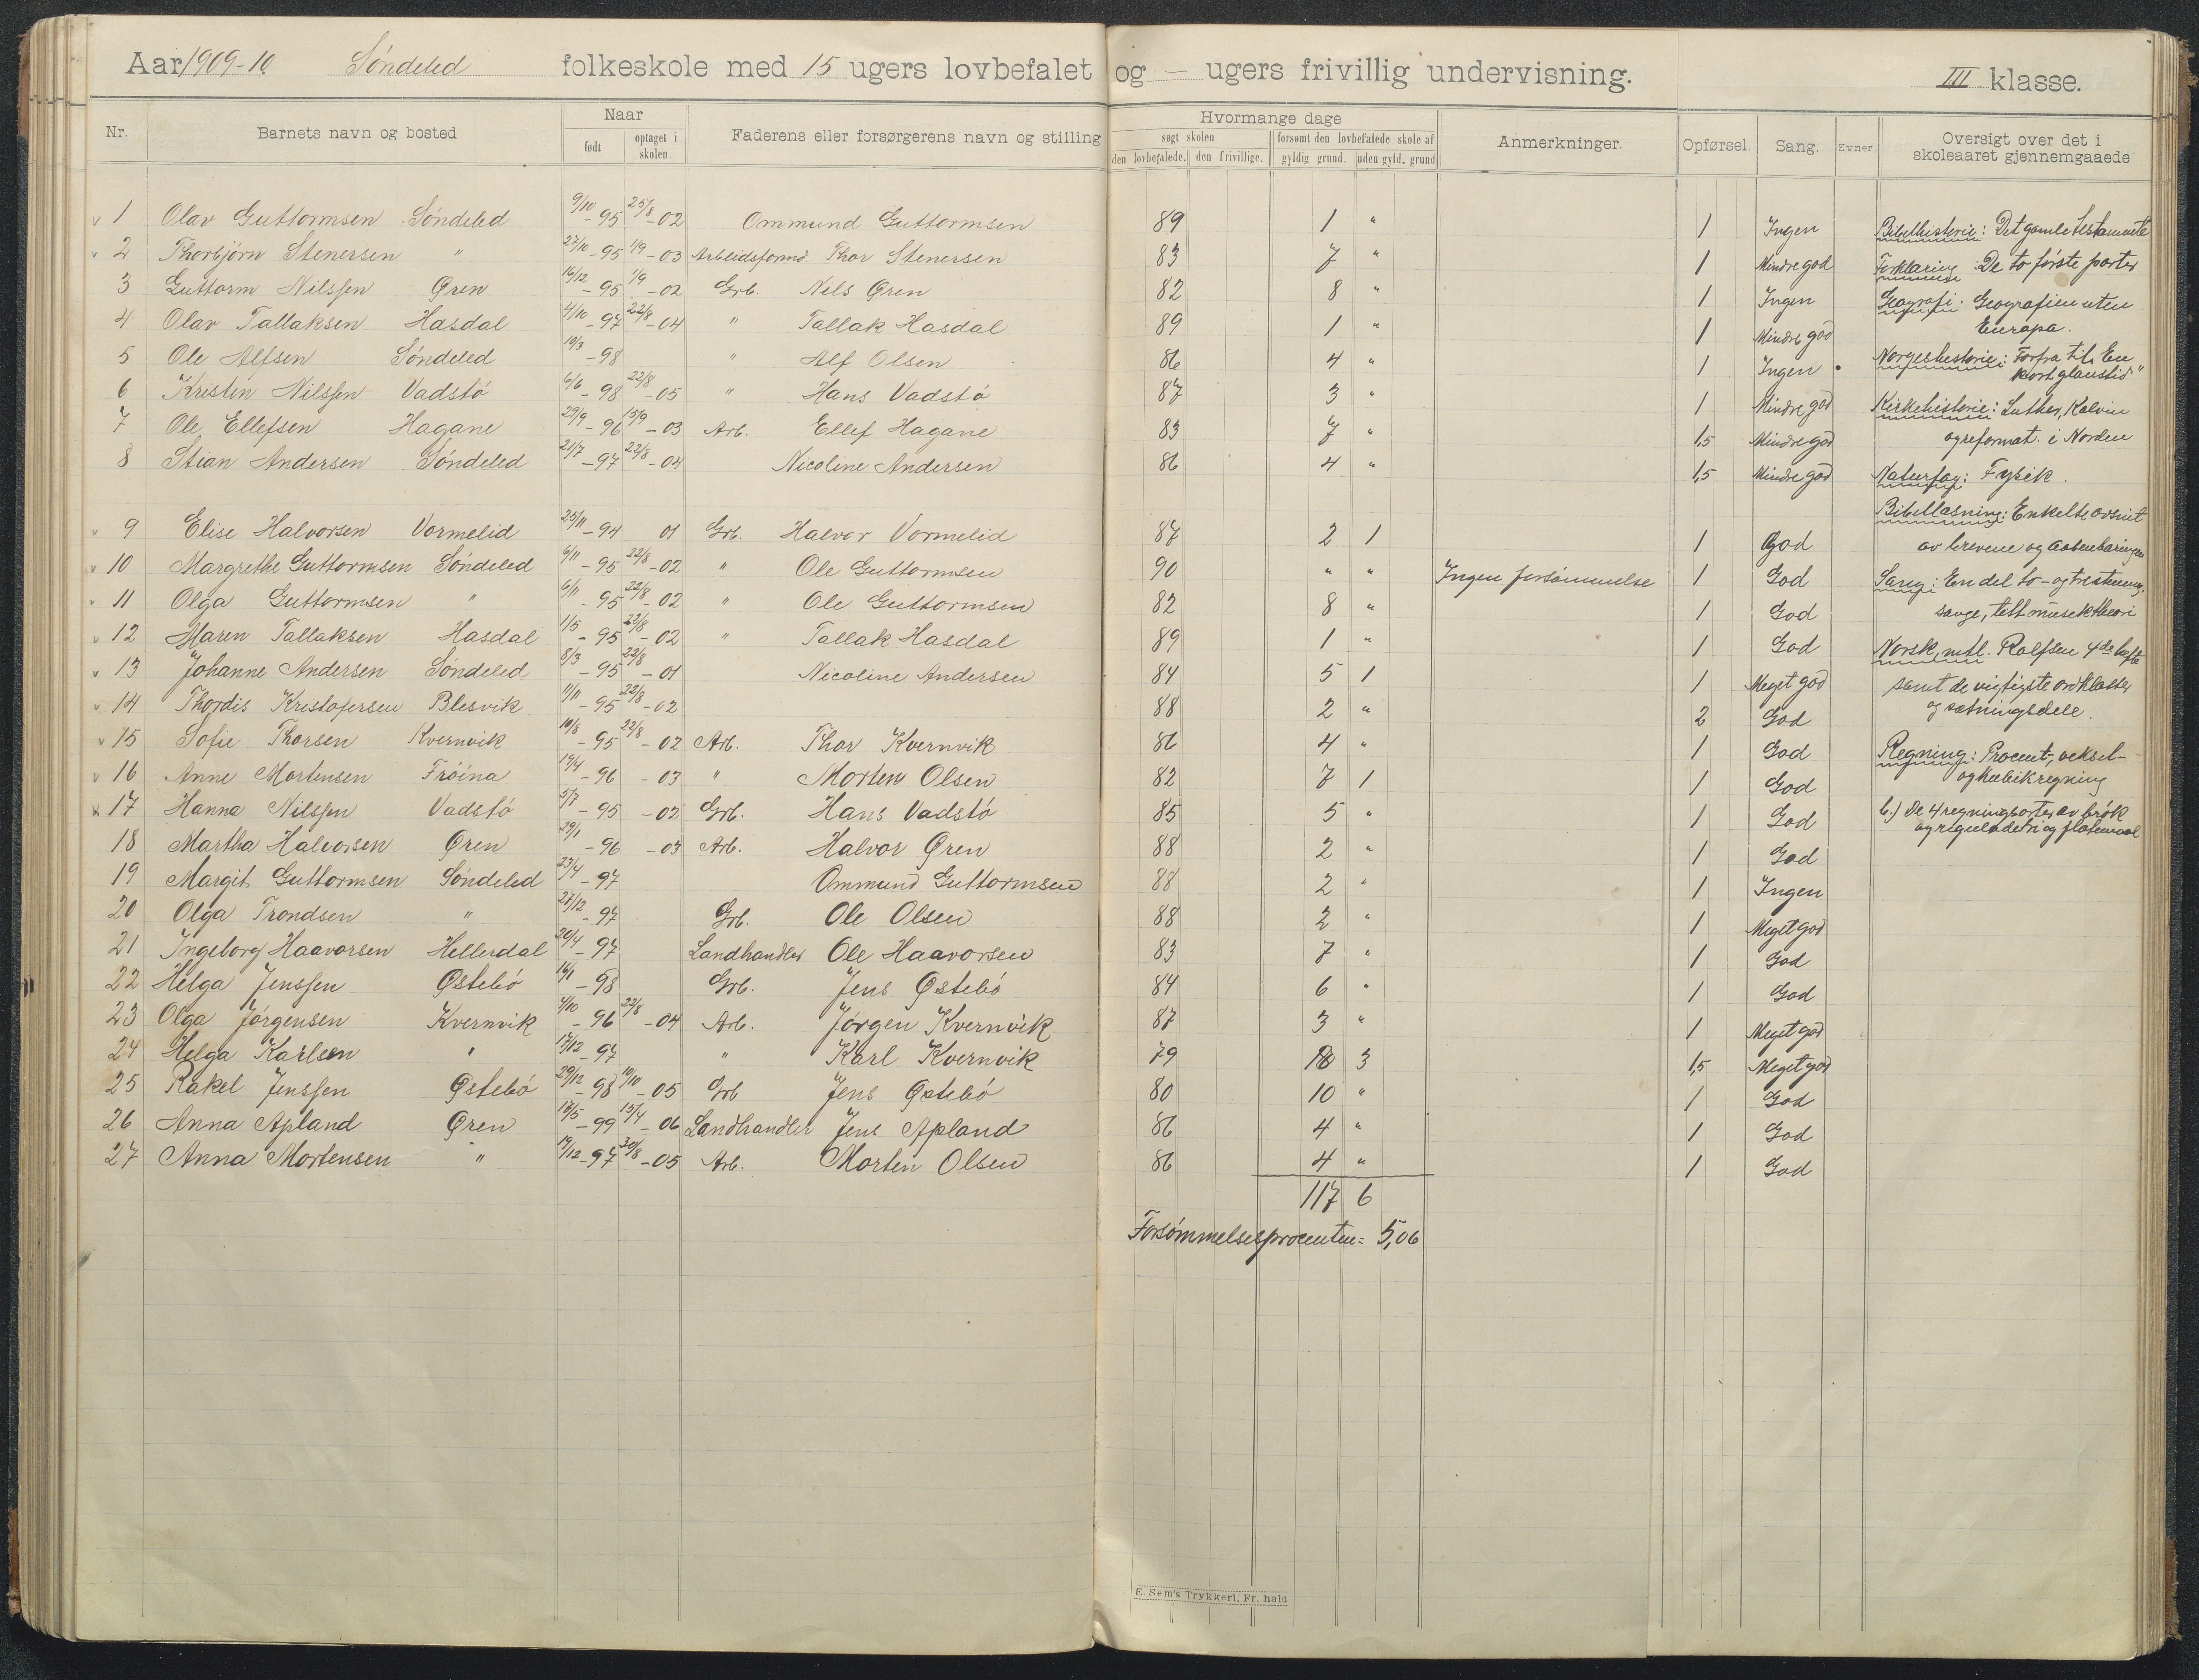 Aar 1909-10. Søndeled folkeskole med 15 ugers lovbefalet og — ugers frivillig undervisning. III klasse.
Nr. Barnets navn og bosted Naar født optaget i skolen. Faderens eller forsørgerens navn og stilling Hvormange dage søgt skolen den lovbefalede. den frivillige. forsømt den lovbefalede skole af gyldig grund. uden gyld. grund Anmerkninger. Opførsel. Sang. Evner Oversigt over det i skoleaaret gjennemgaaede
1 Olav Guttormsen Søndeled 9/10 - 95 25/8 - 02 Ommund Guttormsen 89 1 " 1 Ingen Bibelhistorie: Det gamle testamente
2 Thorbjørn Stenersen " 27/10 - 95 1/9 - 03 Arbeidsformd. Thor Stenersen 83 7 " 1 Mindre god Forklaring: De to første parter
3 Guttorm Nilssen Øren 16/12 - 95 1/9 - 02 Grb. Nils Øren 82 8 " 1 Ingen Geografi: Geografien uten
4 Olav Tallaksen Hasdal 4/10 - 97 22/8 - 04 " Tallak Hasdal 89 1 " 1 Mindre god Europa.
5 Ole Alfsen Söndeled 10/3 - 98 " Alf Olsen 86 4 " 1 Ingen Norgeshistorie: Forfra til "En kort glanstid"
6 Kristen Nilssen Vadstö 6/6 - 98 22/8 - 05 " Hans Vadstö 87 3 " 1 Mindre god Kirkehistorie: Luther, Kalvin
7 Ole Ellefsen Hagane 29/9 - 96 15/9 - 03 Arb. Ellef Hagane 83 7 " 1,5 Mindre god og reformat. i Norden
8 Stian Andersen Söndeled 21/7 - 97 22/8 - 04 Nicoline Andersen 86 4 " 1,5 Mindre god Naturfag: Fysik.
Bibellæsning: Enkelte avsnit
9 Elise Halvorsen Vormelid 25/11 - 94 01 Grb. Halvor Vormelid 87 2 1 1 God av brevene og aabenbaringen
10 Margrethe Guttormsen Söndeled 6/11 - 95 22/8 - 02 " Ole Guttormsen 90 " " Ingen forsömmelse 1 God Sang: En del to- og trestemmig.
11 Olga Guttormsen " 6/11 - 95 22/8 - 02 " Ole Guttormsen 82 8 " 1 God sange, litt musektheori
12 Maren Tallaksen Hasdal 1/5 - 95 22/8 - 02 " Tallak Hasdal 89 1 " 1 God Norsk, mtl. Rolfsen 4de hefte
13 Johanne Andersen Söndeled 8/3 - 95 22/8 - 01 Nicoline Andersen 84 5 1 1 Meget god samt de vigtigste ordklasser
14 Thordis Kristofersen Blesvik 11/11 - 95 22/8 - 02 88 2 " 2 God og sætningsdele.
15 Sofie Thorsen Kvernvik 10/8 - 95 22/8 - 02 Arb. Thor Kvernvik 86 4 " 1 God Regning: Procent-, veksel-
16 Anne Mortensen Fröina 19/4 - 96 - 03 " Morten Olsen 82 7 1 1 God og kubikregning
17 Hanna Nilssen Vadstö 5/7 - 95 - 02 Grb. Hans Vadstö 85 5 " 1 God b.) De 4 regningsarter av brök
18 Martha Halvorsen Øren 29/1 - 96 - 03 Arb. Halvor Øren 88 2 " 1 God og reguladetri og flatemaal
19 Margit Guttormsen Söndeled 23/4 - 97 Ommund Guttormsen 88 2 " 1 Ingen
20 Olga Trondsen " 27/12 - 97 Grb. Ole Olsen 88 2 " 1 Meget god
21 Ingeborg Haavorsen Hellerdal 20/4 - 97 Landhandler Ole Haavorsen 83 7 " 1 God
22 Helga Jenssen Østebö - 98 Grb. Jens Østebö 84 6 " 1 God
23 Olga Jörgensen Kvernvik 4/10 - 96 22/8 - 04 Arb. Jörgen Kvernvik 87 3 " 1 Meget god
24 Helga Karlsen " 17/12 - 97 " Karl Kvernvik 79 3 1,5 Meget god
25 Rakel Jenssen Østebö 29/12 - 98 10/10 - 05 Grb Jens Østebö 80 10 " 1 God
26 Anna Apland Øren 17/5 - 99 15/4 - 06 Landhandler Jens Apland 86 4 " 1 God
27 Anna Mortensen " 19/12 - 97 30/8 - 05 Arb. Morten Olsen 86 4 " 1 God
117 6
Forsömmelsesprocenten = 5,06
E. Sem's Trykkeri, Fr. hald